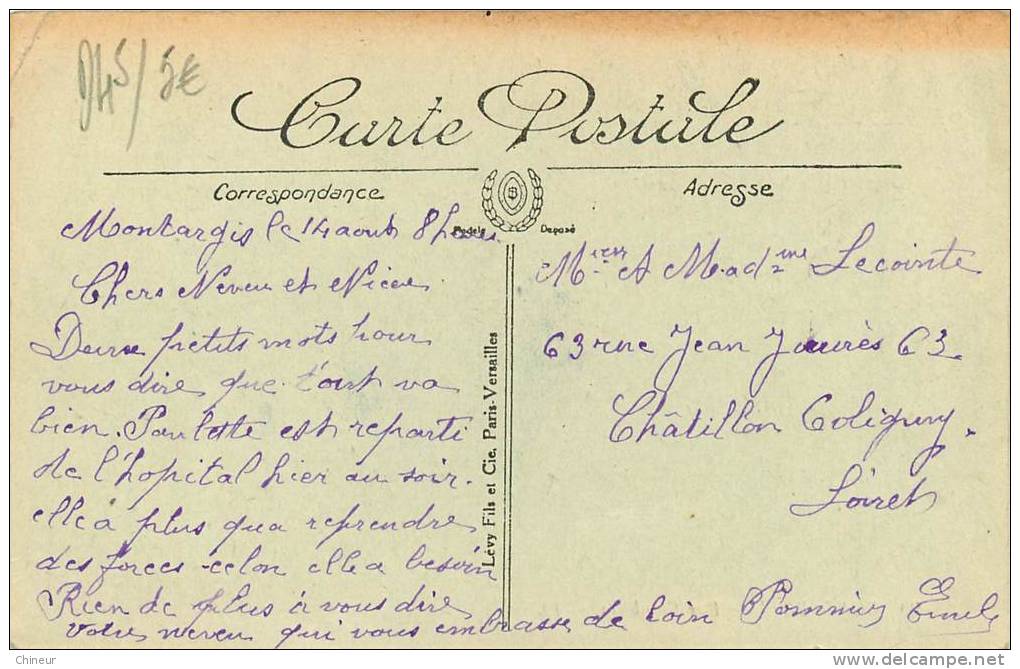 045/5€
Carte Postale
Correspondance
Adresse
Modèle Déposé
Montargis le 14 aout 8 heures
Chers Neveu et Niece
Deux petits mots pour
vous dire que tout va
bien. Paulette est reparti
de l'hopital hier au soir.
elle a plus qua reprendre
des forces celon elle a besoin
Rien de plus à vous dire
votre neveu qui vous embrasse de loin Emile
Lévy Fils et Cie, Paris-Versailles
Mieur et Madame Lecointe
63 rue Jean Jaurès 63
Châtillon Coligny.
Loiret
Chineur
www.delcampe.net